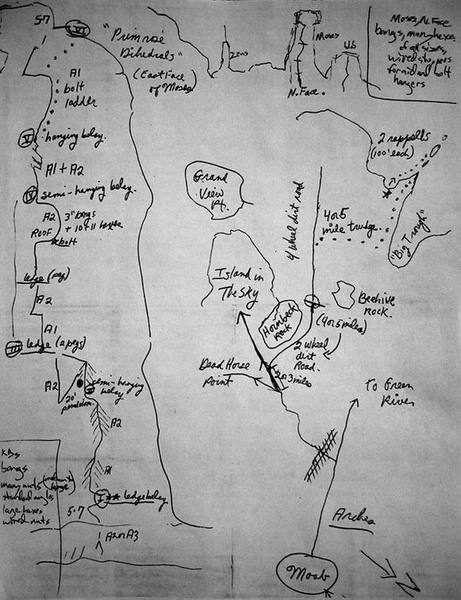 5.7
VI
"Primrose
Dihedrals"
(East Face
of Moses)
Zeus
Moses
N. Face.
US
Moses, N. Face
bongs, many hexes
of all sizes,
wired stoppers
for nid and bolt
hangers
A1
bolt
ladder
V
hanging belay.
A1 + A2
IV
semi-hanging belay.
A2
3" bongs
ROOF
+ 10 + 11 hexes
bolt
ledge (pg)
A2
A1
III
ledge (2 pgs)
A2
20'
pendulum.
II
semi-hanging
belay
A2
A1
I
ledge belay.
5.7
A2 or A3
KBs
bongs
many nuts
stacked angles
large hexes
wired nuts
Grand
View
Pt.
4 Wheel dirt road
2 rappells
(100' each)
4 or 5
mile trudge
"Big Trough"
Island in
The Sky
Hornbeck
Rock
Beehive
Rock.
(4 or 5 miles)
2 wheel
dirt
Road.
Dead Horse
Point
2 or 3 miles
To Green
River
Arches
Moab
N